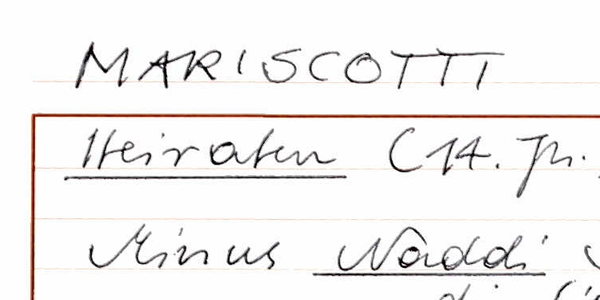 MARISCOTTI
Heiraten (14. Jh.
Minus Naddi